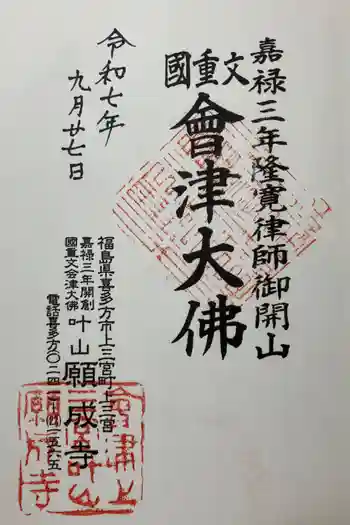 嘉禄三年隆寛律師御開山
國重文
會津大佛
令和七年
九月廿七日
福島県喜多方市上三宮町上三宮
嘉禄三年開創
國重文会津大佛
叶山
願成寺
電話喜多方(〇二四一)